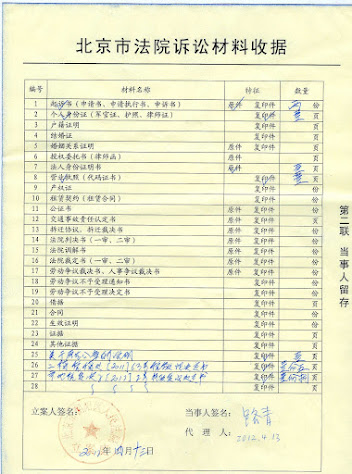 北京市法院诉讼材料收据
编号 材料名称 特征 数量
1 起诉书(申请书、申请执行书、申诉书) 原件 复印件 份
2 个人身份证(军官证、护照、律师证) 复印件 页
3 户籍证明 复印件 页
4 结婚证 复印件 页
5 婚姻关系证明 原件 页
6 授权委托书(律师函) 原件 页
7 法人身份证明书 原件 页
8 营业执照(代码证书) 复印件 页
9 产权证 复印件 份
10 租赁契约(租赁合同) 复印件 份
11 公证书 原件 复印件 页
12 交通事故责任认定书 原件 复印件 页
13 拆迁协议、拆迁裁决书 原件 复印件 页
14 法院判决书(一审、二审) 原件 复印件 页
15 法院调解书 原件 复印件 页
16 法院裁定书(一审、二审) 原件 复印件 页
17 劳动争议裁决书、人事争议裁决书 原件 复印件 页
18 劳动争议不予受理通知书 复印件 页
19 劳动争议不予受理决定书 复印件 页
20 借据 复印件 页
21 合同 复印件 份
22 生效证明 复印件 页
23 证据 复印件 页
24 其他证据 复印件 页
25 复印件 页
26 复印件
27 复印件
28 复印件 页
第二联 当事人留存
立案人签名: 当事人签名:
代 理 人: 2012.4.13